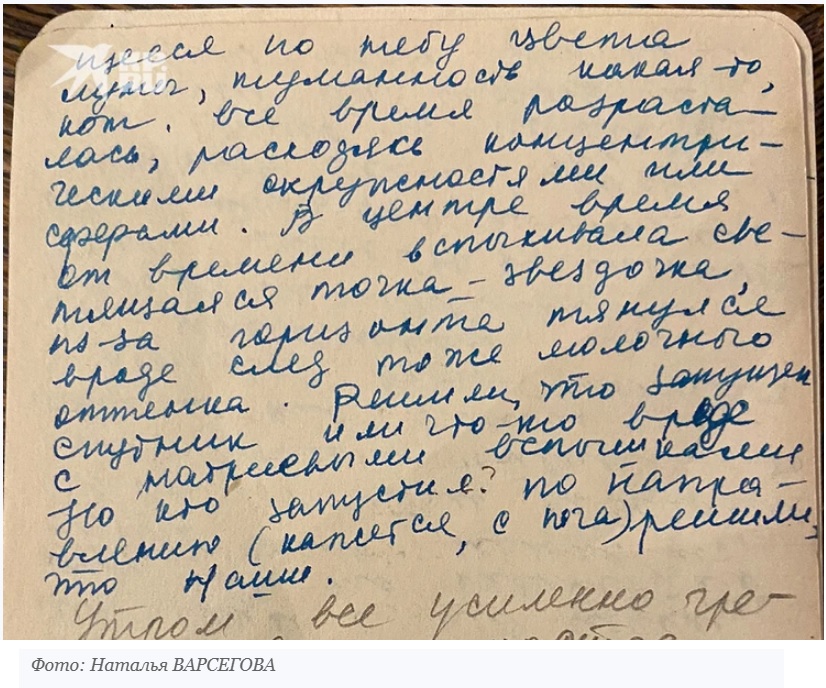 щееся по небу цвета
луны, туманность какая-то,
кот. все время разраста-
лась, расходясь концентри-
ческими окружностями или
сферами. В центре время
от времени вспыхивала све-
тящаяся точка – звездочка,
из-за горизонта тянулся
вроде след тоже молочного
оттенка. Решили, что запущен
спутник или что-то вроде
с натриевыми вспышками
Но кто запустил? По напра-
влению (кажется, с юга) решили,
что наши.
Утром все усиленно гре-
Фото: Наталья ВАРСЕГОВА